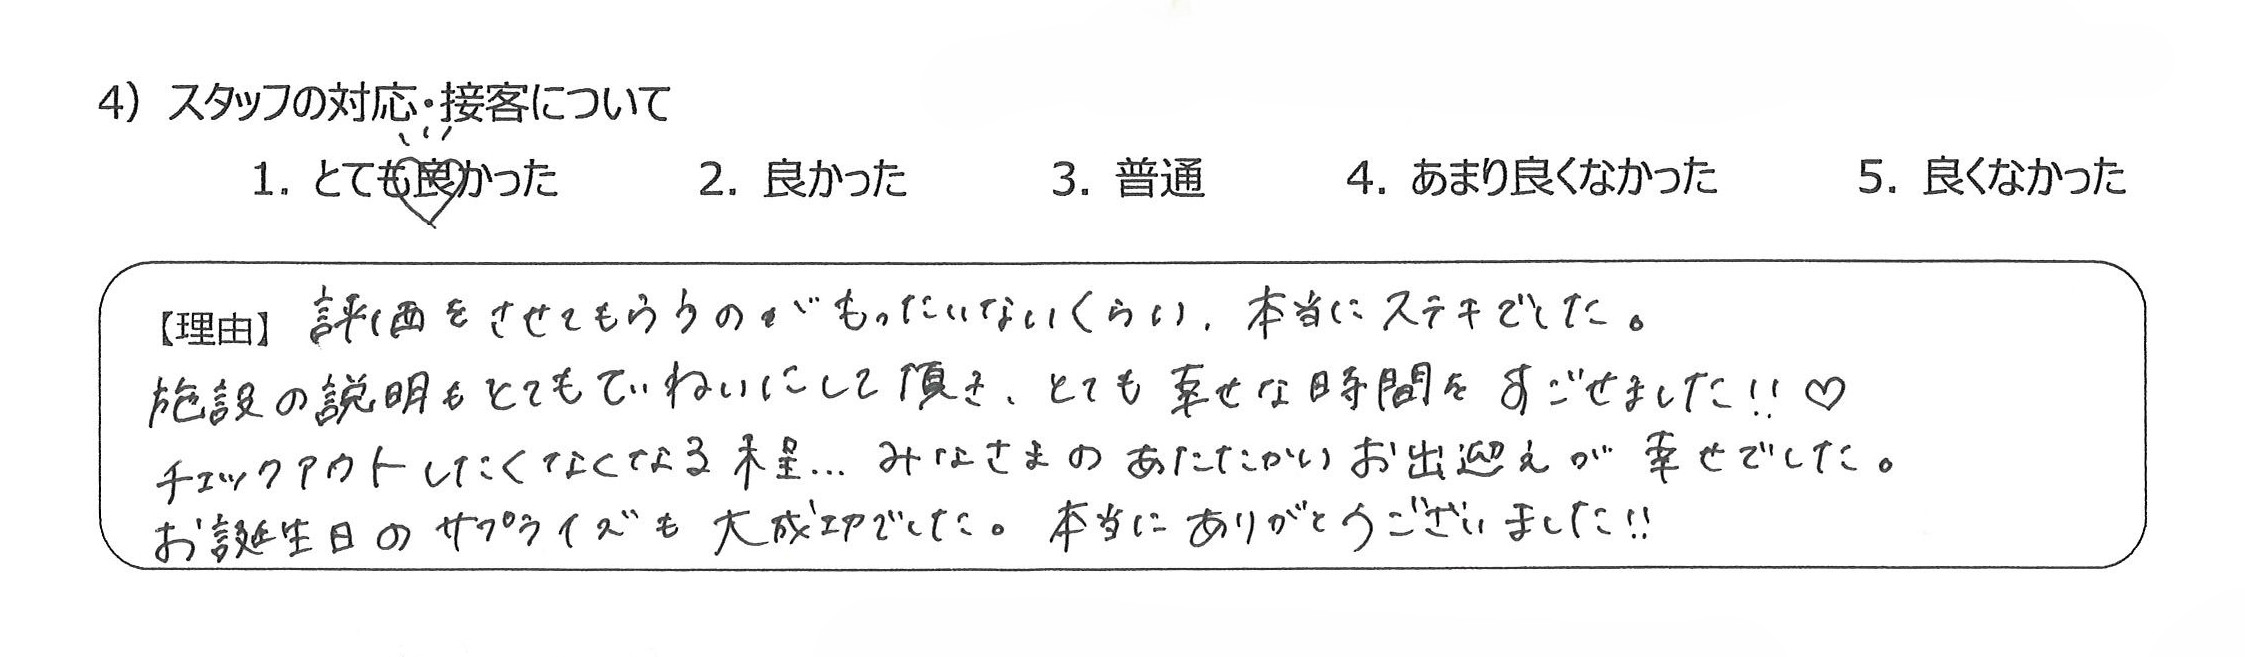 4）スタッフの対応・接客について
1. とても良かった　2. 良かった　3. 普通　4. あまり良くなかった　5. 良くなかった
【理由】 評価をさせてもらうのがもったいないくらい、本当にステキでした。
施設の説明もとてもていねいにして頂き、とても幸せな時間をすごせました!!♡
チェックアウトしたくなくなる程… みなさまのあたたかいお出迎えが幸せでした。
お誕生日のサプライズも大成功でした。本当にありがとうございました!!